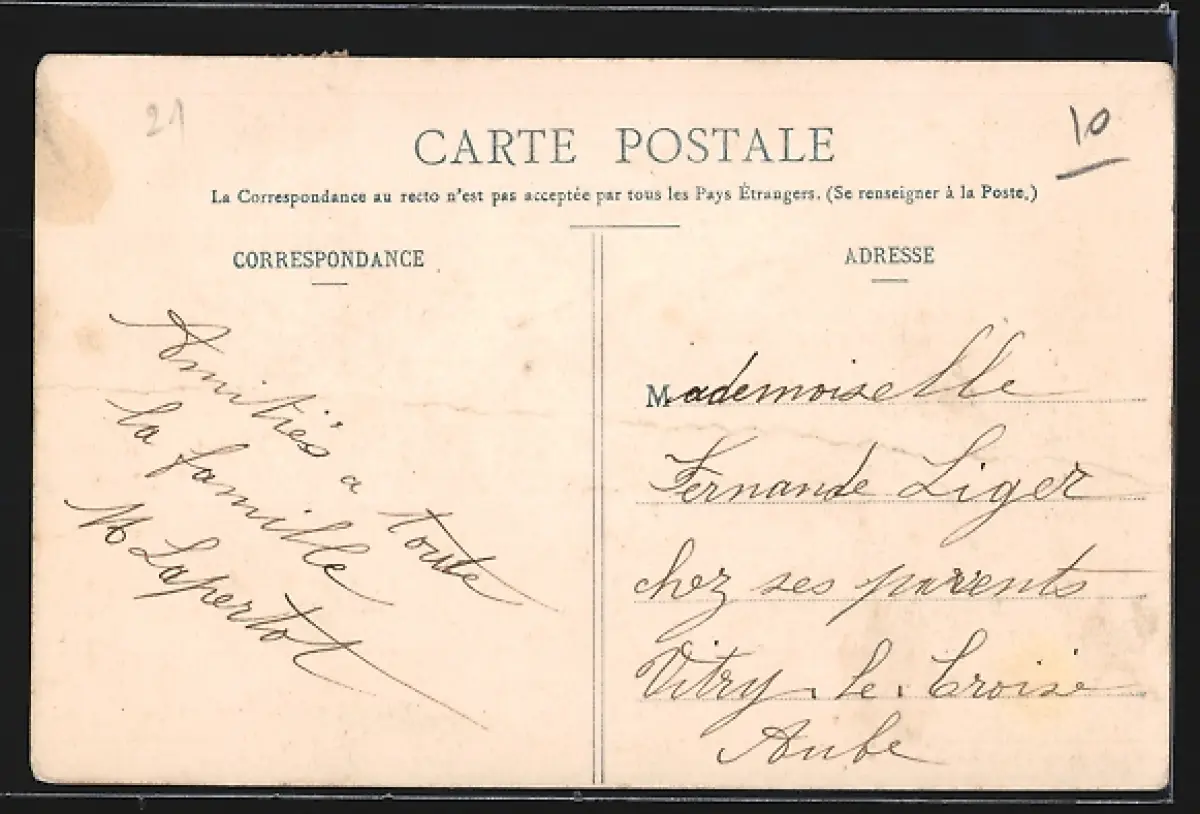 21
10
CARTE POSTALE
La Correspondance au recto n'est pas acceptée par tous les Pays Étrangers. (Se renseigner à la Poste.)
CORRESPONDANCE
Amitiés a toute
la famille
M Lapertot
ADRESSE
Mademoiselle
Fernande Liger
chez ses parents
Vitry. le. Croisé
Aube